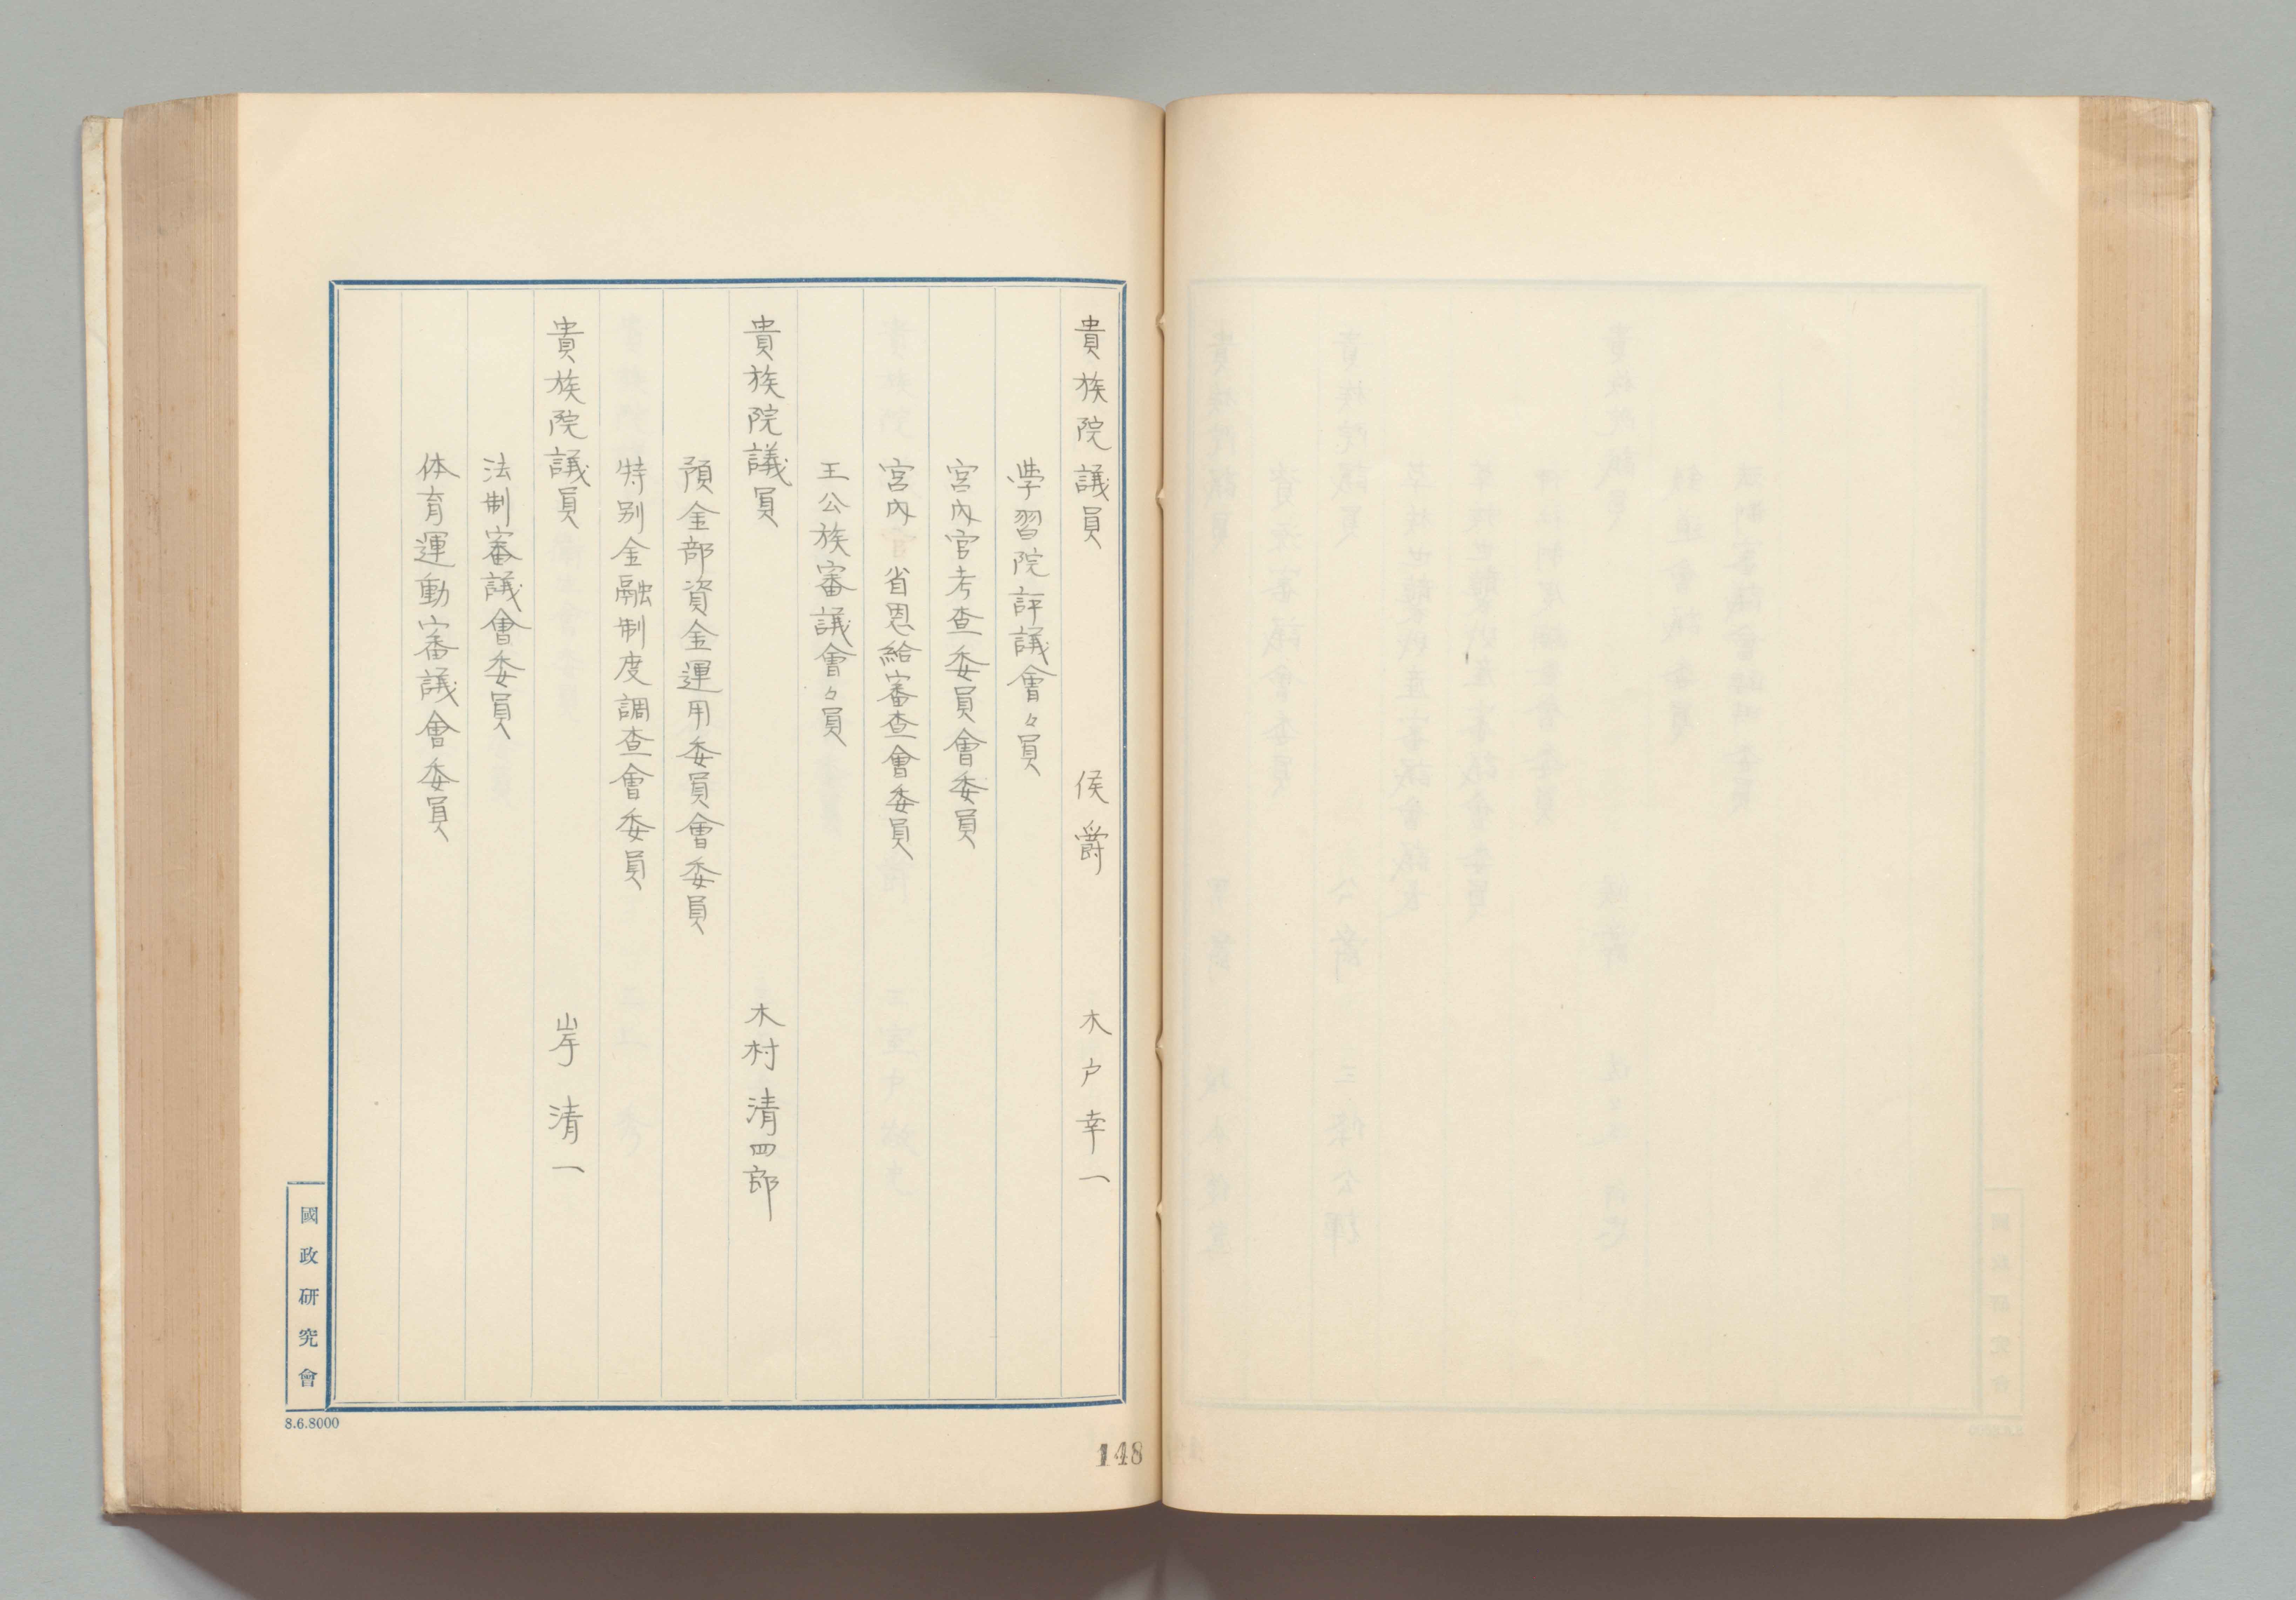 貴族院議員 侯爵 木戸幸一
学習院評議會々員
宮内官考査委員會委員
宮内省恩給審査會委員
王公族審議會々員
貴族院議員 木村清四郎
預金部資金運用委員會委員
特別金融制度調査會委員
貴族院議員 岸清一
法制審議會委員
体育運動審議會委員
國政研究會
8.6.8000
148